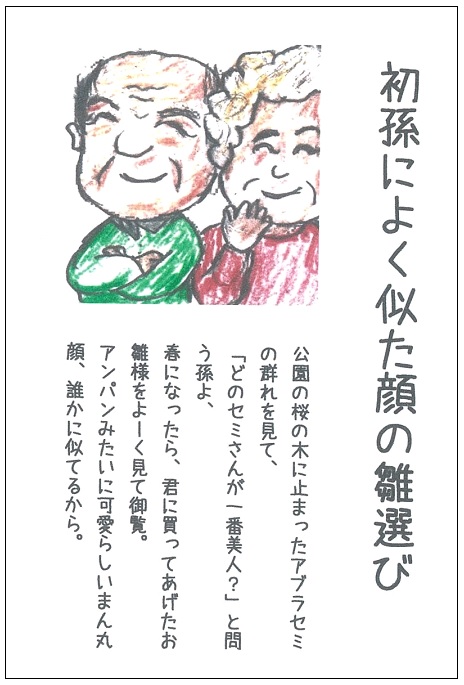 初孫によく似た顔の雛選び
公園の桜の木に止まったアブラゼミ
の群れを見て、
「どのセミさんが一番美人？」と問
う孫よ、
春になったら、君に買ってあげたお
雛様をよーく見て御覧。
アンパンみたいに可愛らしいまん丸
顔、誰かに似てるから。